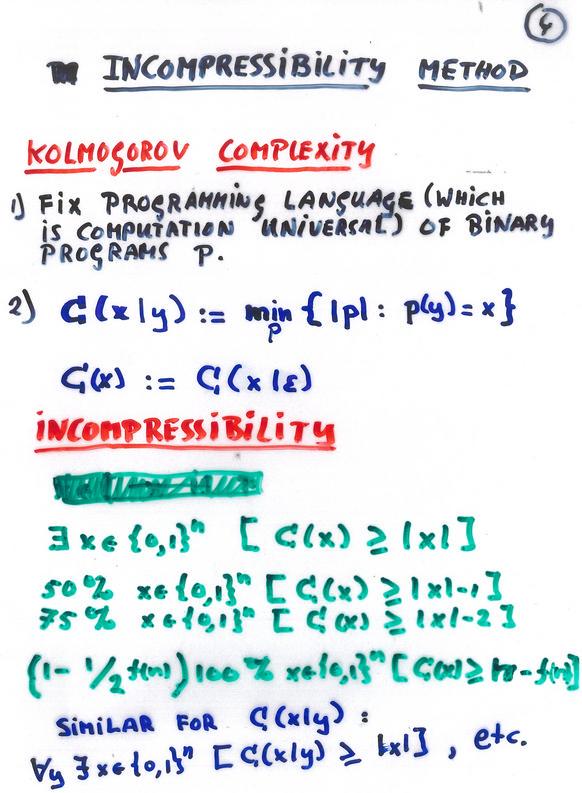 4
INCOMPRESSIBILITY METHOD
KOLMOGOROV COMPLEXITY
1) FIX PROGRAMMING LANGUAGE (WHICH
IS COMPUTATION UNIVERSAL) OF BINARY
PROGRAMS P.
2) C(x|y) := min_p {|p| : p(y) = x}
C(x) := C(x|ε)
INCOMPRESSIBILITY
∃ x ∈ {0,1}^n [ C(x) ≥ |x| ]
50% x ∈ {0,1}^n [ C(x) ≥ |x|-1 ]
75% x ∈ {0,1}^n [ C(x) ≥ |x|-2 ]
(1 - 1/2^f(n)) 100% x ∈ {0,1}^n [ C(x) ≥ - f(n) ]
SIMILAR FOR C(x|y) :
∀y ∃ x ∈ {0,1}^n [ C(x|y) ≥ |x| ] , etc.